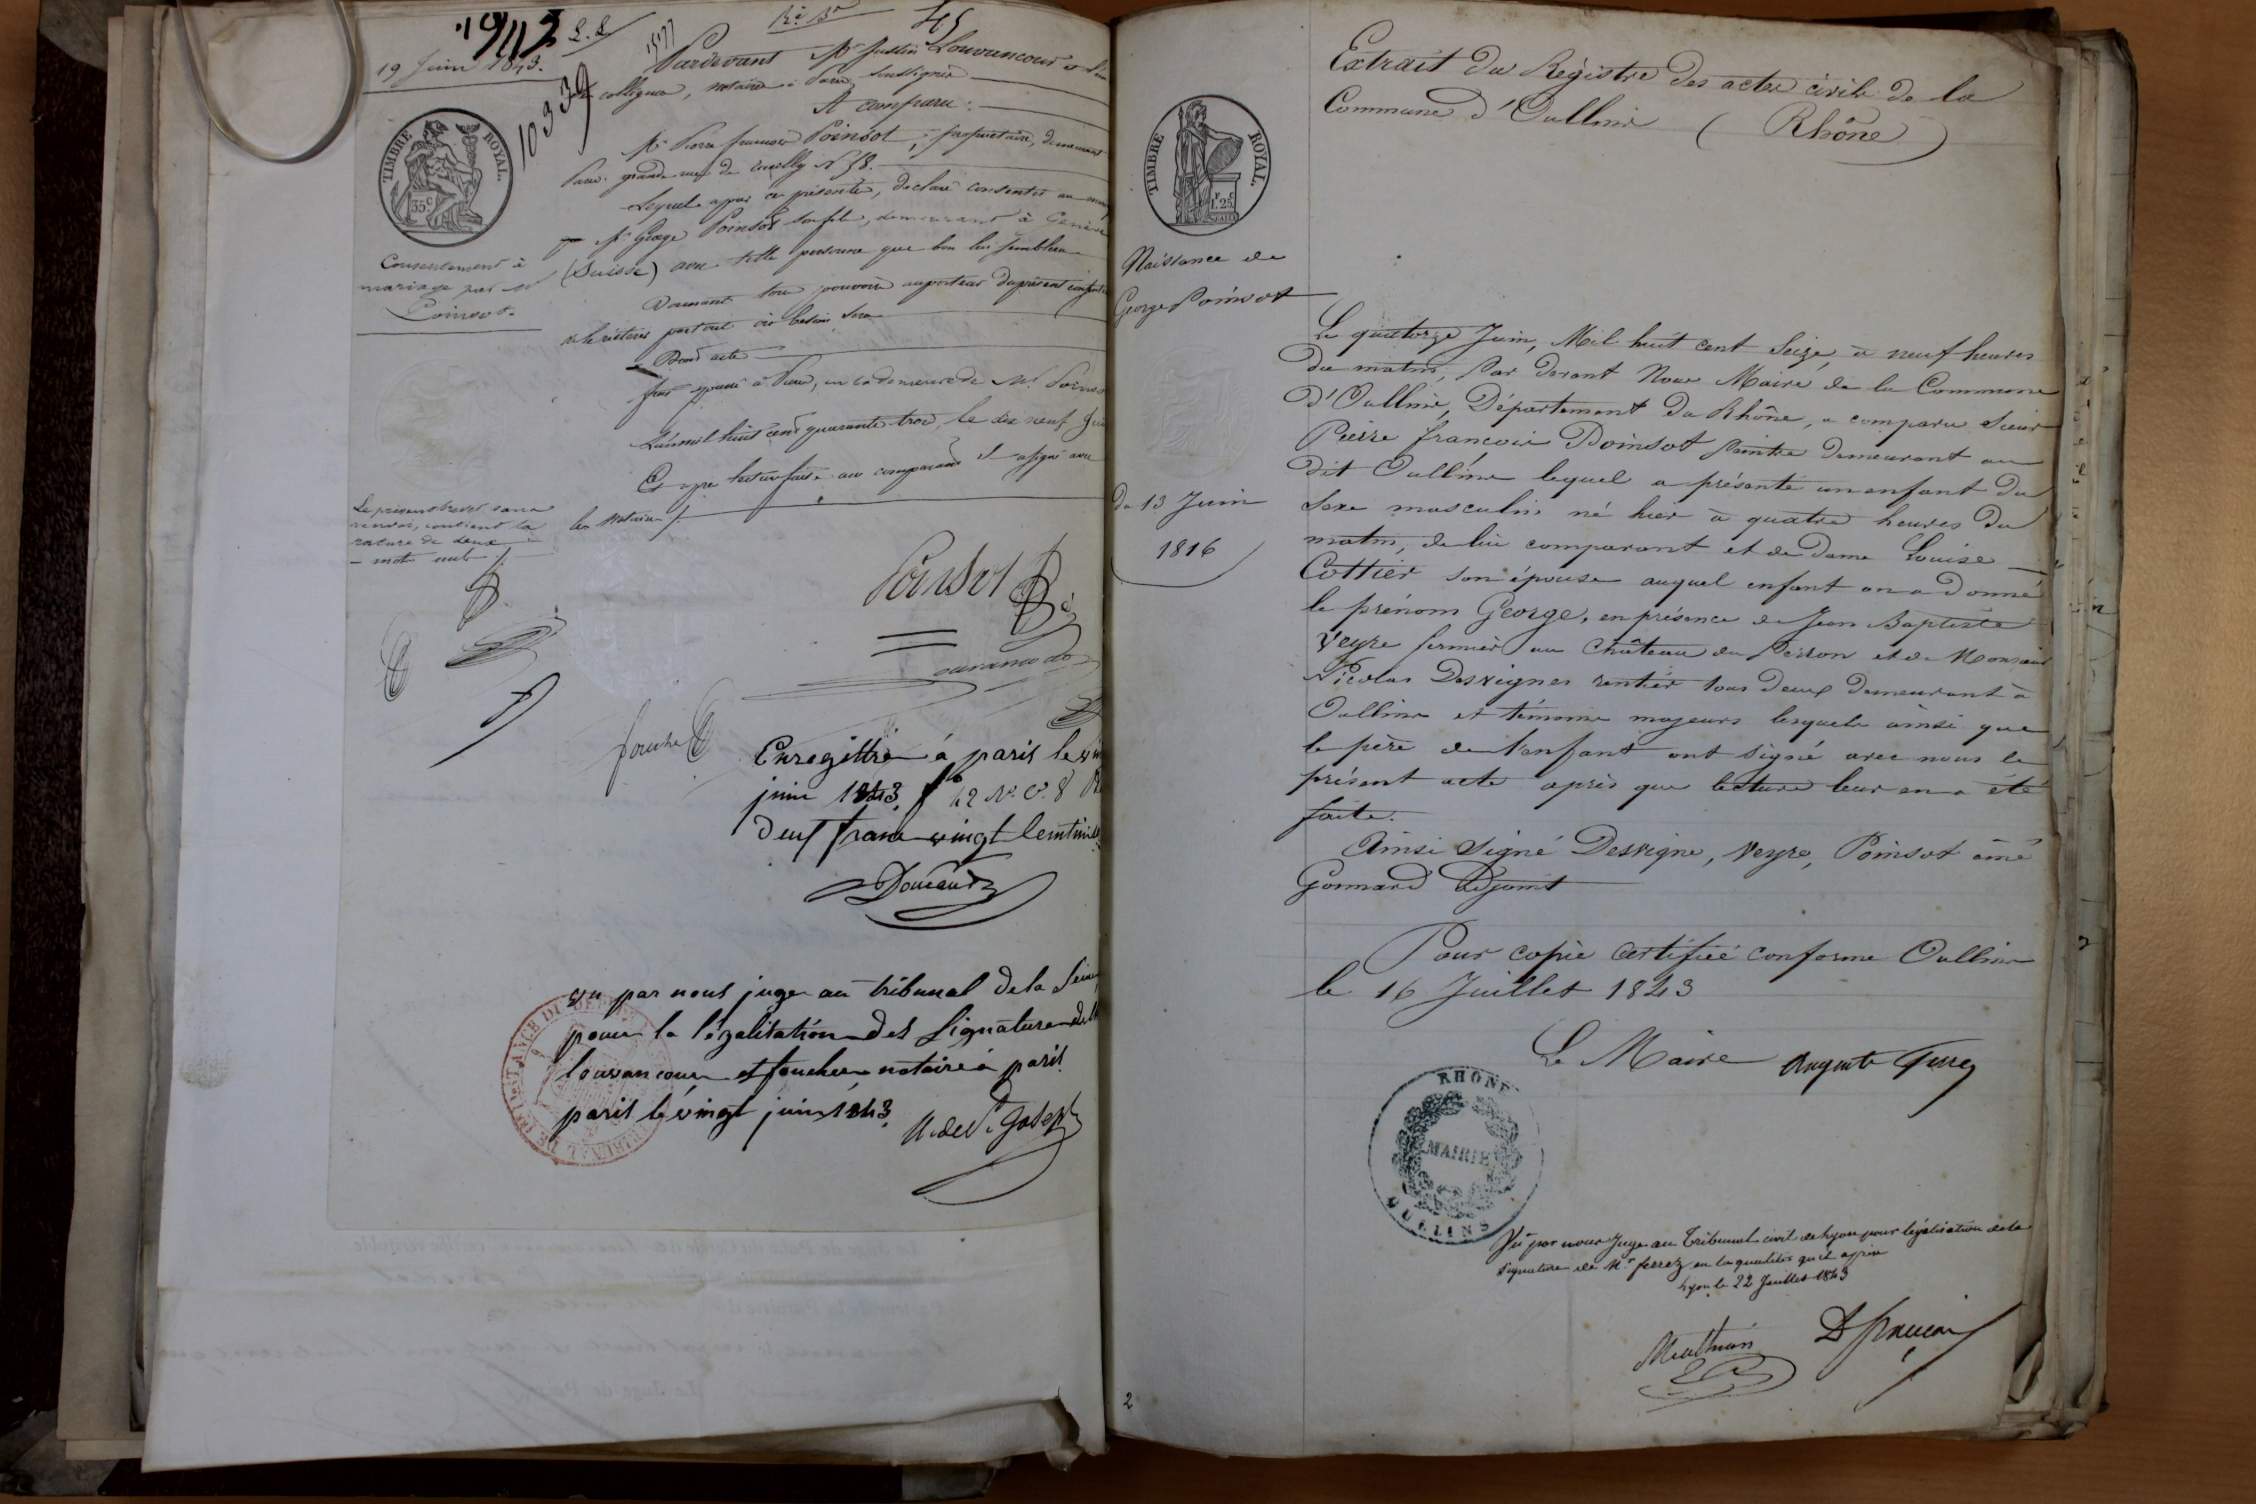 19 Juin 1843.
10339
45
Pardevant Me Justin Louvancour et son
collègue, notaires à Paris, soussignés
A comparu:
Mr Pierre françois Poinsot, propriétaire, demeurant
Paris grande rue de N° 58.
Lequel a par ces présentes, déclaré consentir au
Mr George Poinsot son fils, demeurant à Genève
(Suisse) avec telle personne que bon lui semblera
Donnant tous pouvoirs au porteur du présent
réitérer partout où besoin sera
Dont acte
fait & passé à Paris, en la demeure de Mr Poinsot
L'an mil huit cent quarante trois, le dix neuf Juin
Et après lecture faite au comparant il a signé avec
les notaires /.
TIMBRE ROYAL.
35c
Consentement à
mariage par Mr
Poinsot.
Le présent brevet sans
renvoi, contient la
rature de deux
mots nuls /.
Poinsot
fouché
Enregistré à paris le
juin 1843, f° 42 V°. C°. 8
deux francs vingt centimes
vu par nous juge au tribunal de la Seine,
pour la légalisation des signatures de Me
louvancour et foucher notaires à paris
paris le vingt juin 1843.
N. de St Joseph
Extrait du Régistre des actes civils de la
Commune d'Oullins (Rhône)
TIMBRE ROYAL.
1f 25c
Naissance de
George Poinsot
du 13 Juin
1816
Le quatorze Juin, Mil huit cent Seize, à neuf heures
du matin, Par devant Nous Maire de la Commune
d'Oullins, Département du Rhône, a comparu Sieur
Pierre françois Poinsot Peintre demeurant au
dit Oullins lequel a présenté un enfant du
Sexe masculin né hier à quatre heures du
matin, de lui comparant et de Dame Louise
Cottier son épouse auquel enfant on a donné
le prénom George, en présence de Jean Baptiste
Veyre fermier au Château du Perron et de Monsieur
Nicolas Desvignes rentier tous deux demeurant à
Oullins et témoins majeurs lesquels ainsi que
le père de l'enfant ont signé avec nous le
présent acte après que lecture leur en a été
faite.
Ainsi Signé Desvigne, Veyre, Poinsot ainé
Gonnard adjoint
Pour copie certifiée conforme Oullins
le 16 Juillet 1843
Le Maire Auguste Ferrez
RHÔNE
MAIRIE
OULLINS
Vu par nous Juge au Tribunal civil de Lyon pour légalisation de la
signature de Mr ferrez en la qualité qu'il a prise
Lyon le 22 Juillet 1843
2